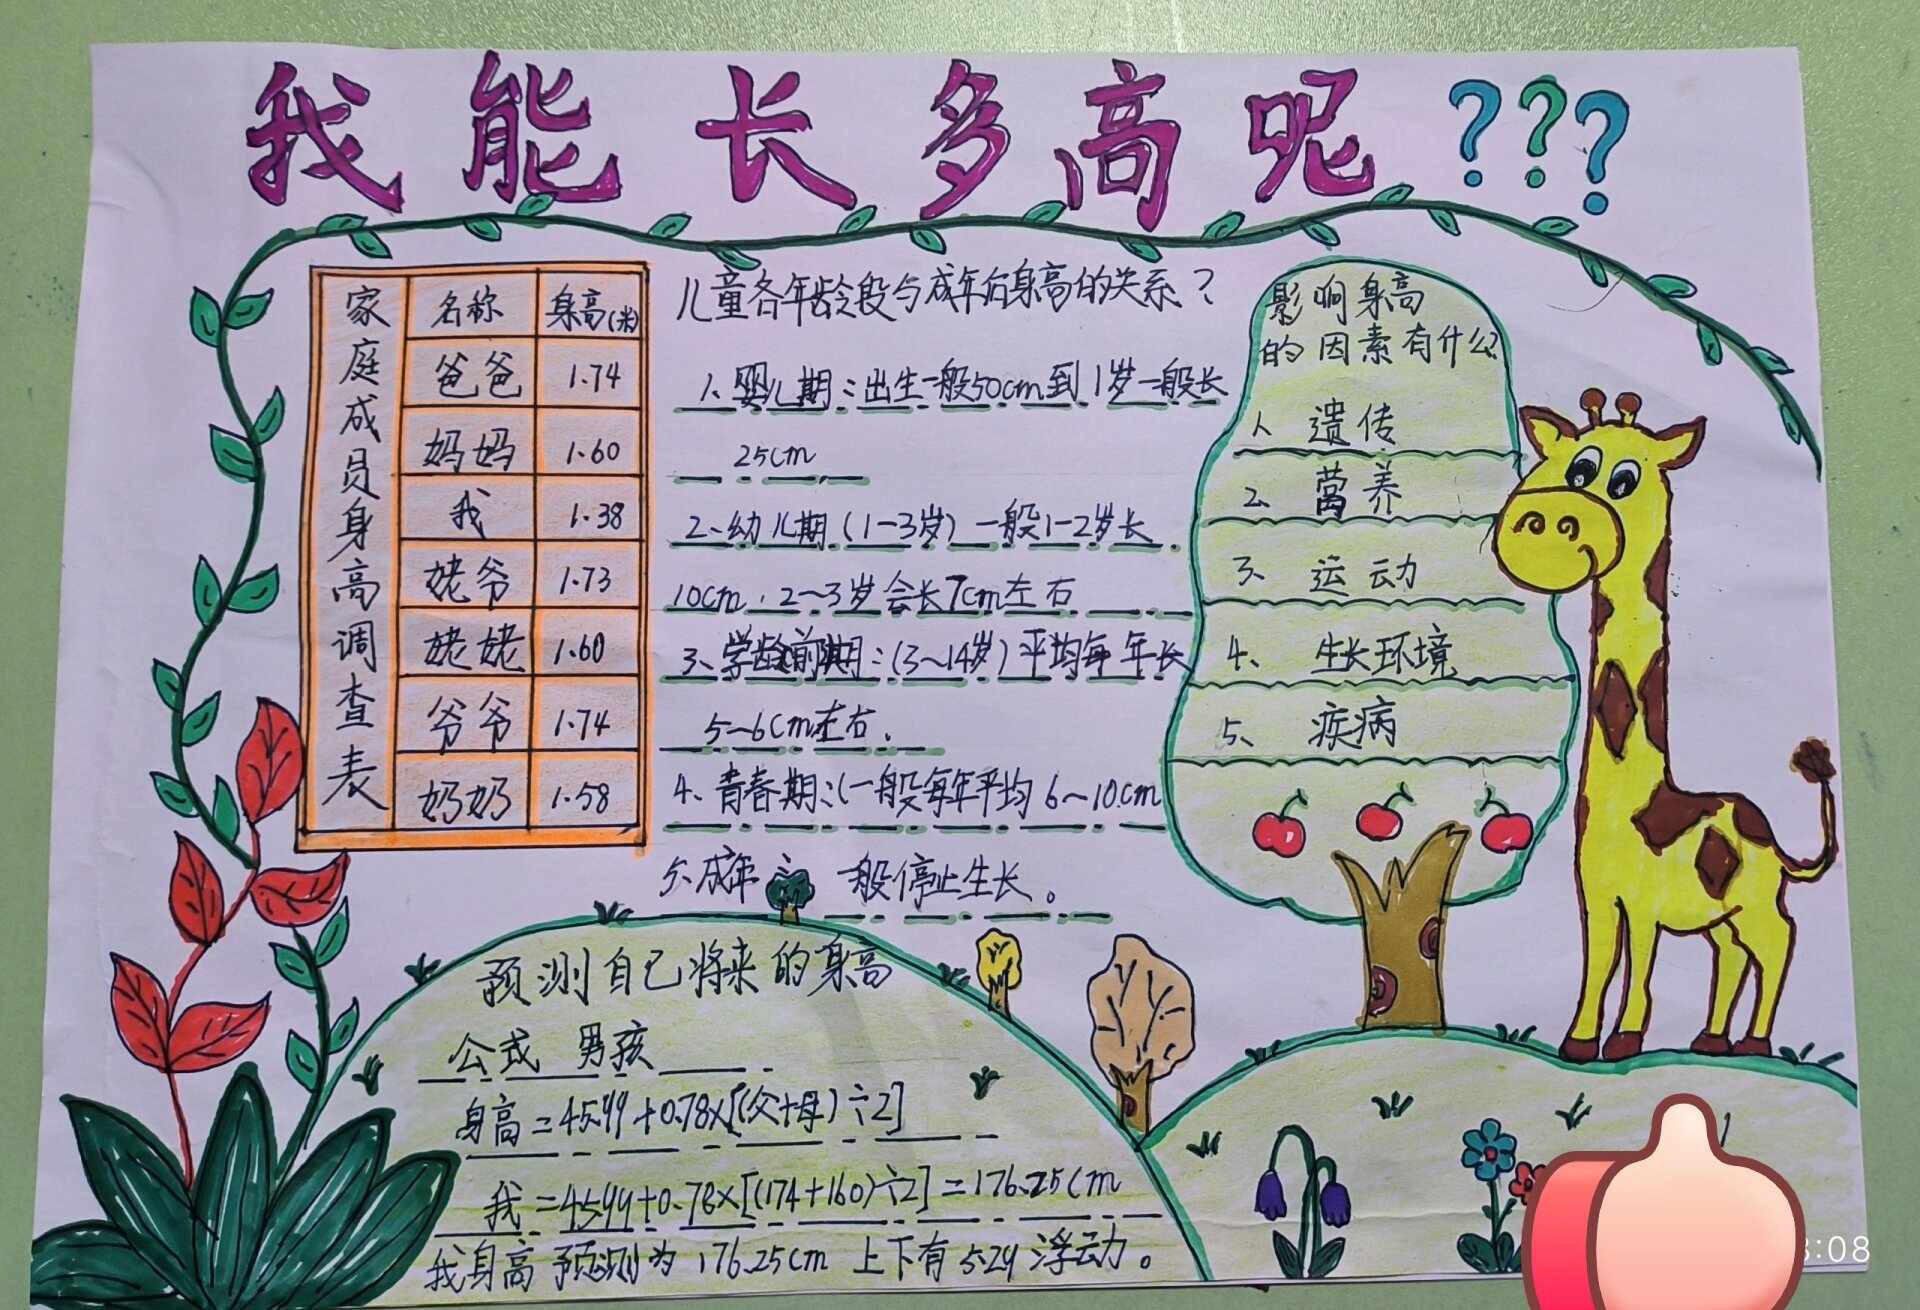 我能长多高呢???
家庭成员身高调查表
名称 身高(米)
爸爸 1.74
妈妈 1.60
我 1.38
姥爷 1.73
姥姥 1.60
爷爷 1.74
奶奶 1.58
儿童各年龄段与成年后身高的关系?
1、婴儿期:出生一般50cm到1岁一般长
25cm
2、幼儿期(1-3岁)一般1-2岁长
10cm,2~3岁会长7cm左右
3、学龄前期:(3~14岁)平均每年长
5~6cm左右.
4、青春期:(一般每年平均6~10cm
5、成年:一般停止生长。
影响身高
的因素有什么?
1、遗传
2、营养
3、运动
4、生长环境
5、疾病
预测自己将来的身高
公式 男孩
身高=45.99+0.78×[(父+母)÷2]
我=45.99+0.78×[(174+160)÷2]=176.25cm
我身高预测为176.25cm上下有5.29浮动。
:08